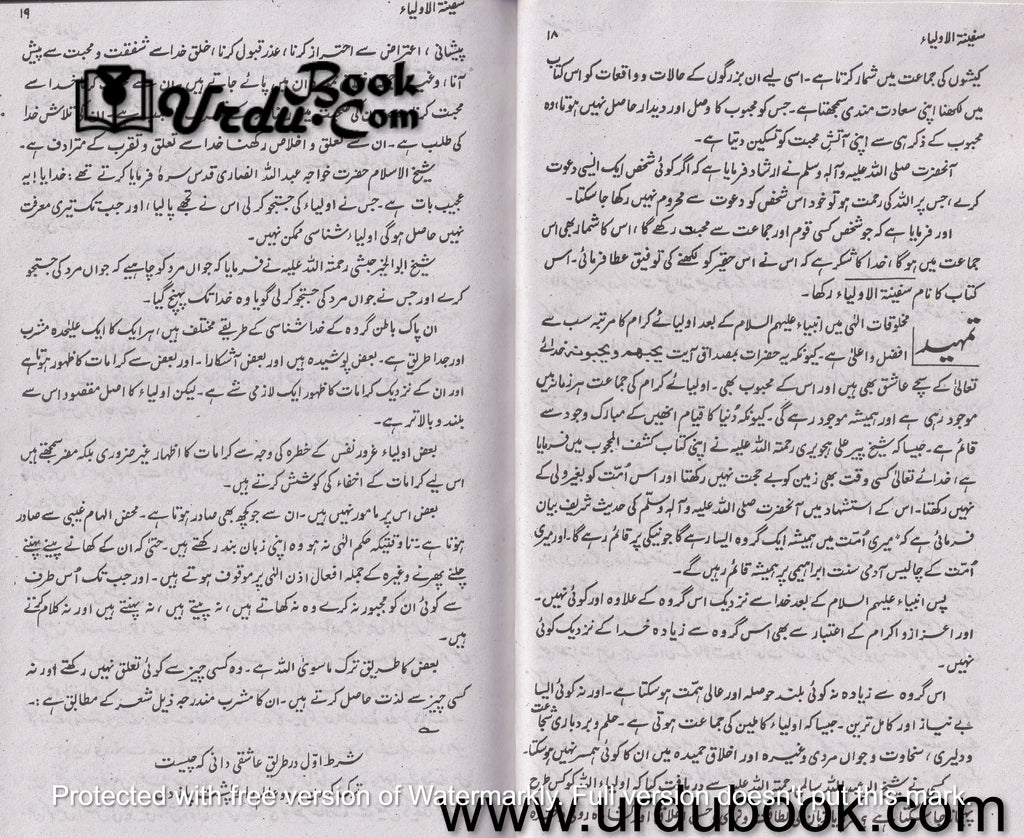 سفینۃ الاولیاء
۱۸
کیشوں کی جماعت میں شمار کرتا ہے۔ اسی لیے ان بزرگوں کے حالات و واقعات کو اس کتاب
میں لکھنا اپنی سعادت مندی سمجھتا ہے۔ جس کو محبوب کا وصل اور دیدار حاصل نہیں ہوتا، وہ
محبوب کے ذکر ہی سے اپنی آتش محبت کو تسکین دیتا ہے۔
آنحضرت صلی اللہ علیہ وآلہ وسلم نے ارشاد فرمایا ہے کہ اگر کوئی شخص ایک ایسی دعوت
کرے، جس پر اللہ کی رحمت ہو تو خود اس شخص کو دعوت سے محروم نہیں رکھا جا سکتا۔
اور فرمایا ہے کہ جو شخص کسی قوم اور جماعت سے محبت رکھے گا، اس کا شمار بھی اس
جماعت میں ہو گا، خدا کا شکر ہے کہ اس نے اس حقیر کو لکھنے کی توفیق عطا فرمائی۔ اس
کتاب کا نام سفینۃ الاولیاء رکھا۔
تمہید
مخلوقات الٰہی میں انبیاء علیہم السلام کے بعد اولیائے کرام کا مرتبہ سب سے
افضل و اعلیٰ ہے۔ کیونکہ یہ حضرات بمصداق آیت یحبھم ویحبونہ خدائے
تعالیٰ کے سچے عاشق بھی ہیں اور اس کے محبوب بھی۔ اولیائے کرام کی جماعت ہر زمانہ میں
موجود رہی ہے اور ہمیشہ موجود رہے گی۔ کیونکہ دُنیا کا قیام انھیں کے مبارک وجود سے
قائم ہے۔ جیسا کہ شیخ پیر علی ہجویری رحمۃ اللہ علیہ نے اپنی کتاب کشف المحجوب میں فرمایا
ہے، خدائے تعالیٰ کسی وقت بھی زمین کو بے حجت نہیں رکھتا اور اس اُمت کو بغیر ولی کے
نہیں رکھتا۔ اس کے استشہاد میں آنحضرت صلی اللہ علیہ وآلہ وسلم کی حدیث شریف بیان
فرمائی ہے کہ میری اُمت میں ہمیشہ ایک گروہ ایسا رہے گا جو نیکی پر قائم رہے گا۔ اور میری
اُمت کے چالیس آدمی سنت ابراہیمی پر ہمیشہ قائم رہیں گے۔
پس انبیاء علیہم السلام کے بعد خدا سے نزدیک اس گروہ کے علاوہ اور کوئی نہیں۔
اور اعزاز و اکرام کے اعتبار سے بھی اس گروہ سے زیادہ خدا کے نزدیک کوئی
نہیں۔
اس گروہ سے زیادہ نہ کوئی بلند حوصلہ اور عالی ہمت ہو سکتا ہے۔ اور نہ کوئی ایسا
بے نیاز اور کامل ترین۔ جیسا کہ اولیاء کاملین کی جماعت ہوتی ہے۔ حلم و بردباری شجاعت
و دلیری، سخاوت و جواں مردی وغیرہ اور اخلاق حمیدہ میں ان کا کوئی ہمسر نہیں ہو سکتا۔
کسی نے شیخ رحمۃ اللہ علیہ سے دریافت کیا کہ اولیاء اللہ کو کس طرح
سفینۃ الاولیاء
۱۹
پیشانی، اعتراض سے احتراز کرنا، عذر قبول کرنا، خلق خدا سے شفقت و محبت سے پیش
آنا، ان میں پائے جاتے ہیں۔ خدا سے
محبت تلاش خدا
کی طلب ہے۔ ان سے تعلق و اخلاص رکھنا خدا سے تعلق و تقرب کے مترادف ہے۔
شیخ الاسلام حضرت خواجہ عبداللہ انصاری قدس سرہٗ فرمایا کرتے تھے: خدایا! یہ
عجیب بات ہے۔ جس نے اولیاء کی جستجو کر لی اس نے تجھے پا لیا، اور جب تک تیری معرفت
نہیں حاصل ہو گی اولیاء شناسی ممکن نہیں۔
شیخ ابوالخیر حبشی رحمۃ اللہ علیہ نے فرمایا کہ جواں مرد کو چاہیے کہ جواں مرد کی جستجو
کرے اور جس نے جواں مرد کی جستجو کر لی گویا وہ خدا تک پہنچ گیا۔
ان پاک باطن گروہ کے خدا شناسی کے طریقے مختلف ہیں، ہر ایک کا ایک علیحدہ مشرب
اور جدا طریق ہے۔ بعض پوشیدہ ہیں اور بعض آشکارا۔ اور بعض سے کرامات کا ظہور ہوتا ہے
اور ان کے نزدیک کرامات کا ظہور ایک لازمی شے ہے۔ لیکن اولیاء کا اصل مقصود اس سے
بلند و بالا تر ہے۔
بعض اولیاء غرور نفس کے خطرہ کی وجہ سے کرامات کا اظہار غیر ضروری بلکہ مضر سمجھتے ہیں
اس لیے کرامات کے اخفاء کی کوشش کرتے ہیں۔
بعض اس پر مامور نہیں ہیں۔ ان سے جو کچھ بھی صادر ہوتا ہے۔ محض الہام غیبی سے صادر
ہوتا ہے۔ تا وقتیکہ حکم الٰہی نہ ہو وہ اپنی زبان بند رکھتے ہیں۔ حتیٰ کہ ان کے کھانے پینے پہننے
چلنے پھرنے وغیرہ کے جملہ افعال اذن الٰہی پر موقوف ہوتے ہیں۔ اور جب تک اُس طرف
سے کوئی ان کو مجبور نہ کرے وہ نہ کھاتے ہیں، نہ پیتے ہیں، نہ پہنتے ہیں اور نہ کلام کرتے
ہیں۔
بعض کا طریق ترک ماسویٰ اللہ ہے۔ وہ کسی چیز سے کوئی تعلق نہیں رکھتے اور نہ
کسی چیز سے لذت حاصل کرتے ہیں۔ ان کا مشرب مندرجہ ذیل شعر کے مطابق ہے :۔
شرط اوّل در طریق عاشقی دانی کہ چیست
Urdu Book.Com
Protected with free version of Watermarkly. Full version doesn't put this mark.
www.urdubook.com